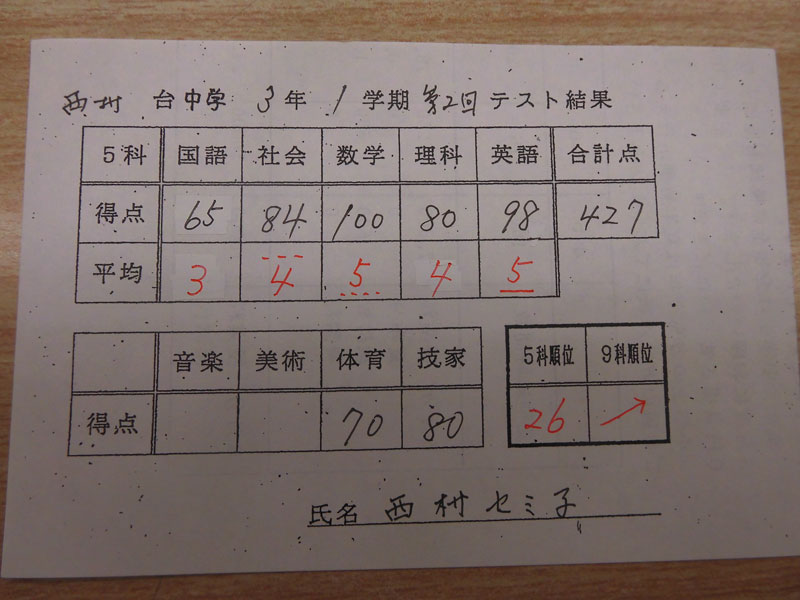 西村 台中学 3年 1学期 第2回 テスト結果
5科 国語 社会 数学 理科 英語 合計点
得点 65 84 100 80 98 427
平均 3 4 5 4 5
音楽 美術 体育 技家
得点 70 80
5科順位 9科順位
26 ↗
氏名 西村セミ子